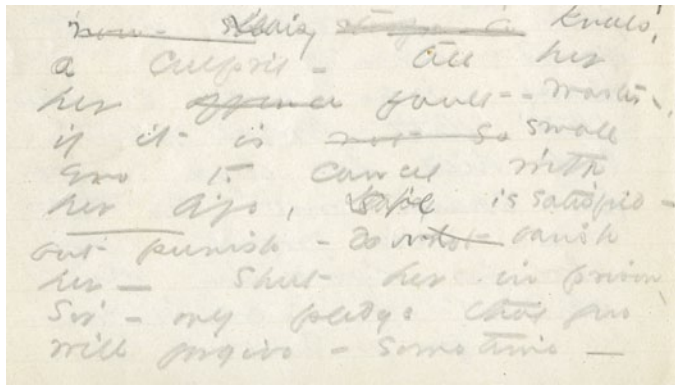 now Daisy stoops a kneels,
a culprit – tell her
her offence fault – Master –
if it is not so small
eno to cancel with
her life, is satisfied –
but punish – do not banish
her – Shut her in prison
Sir – only pledge that you
will forgive – sometime –